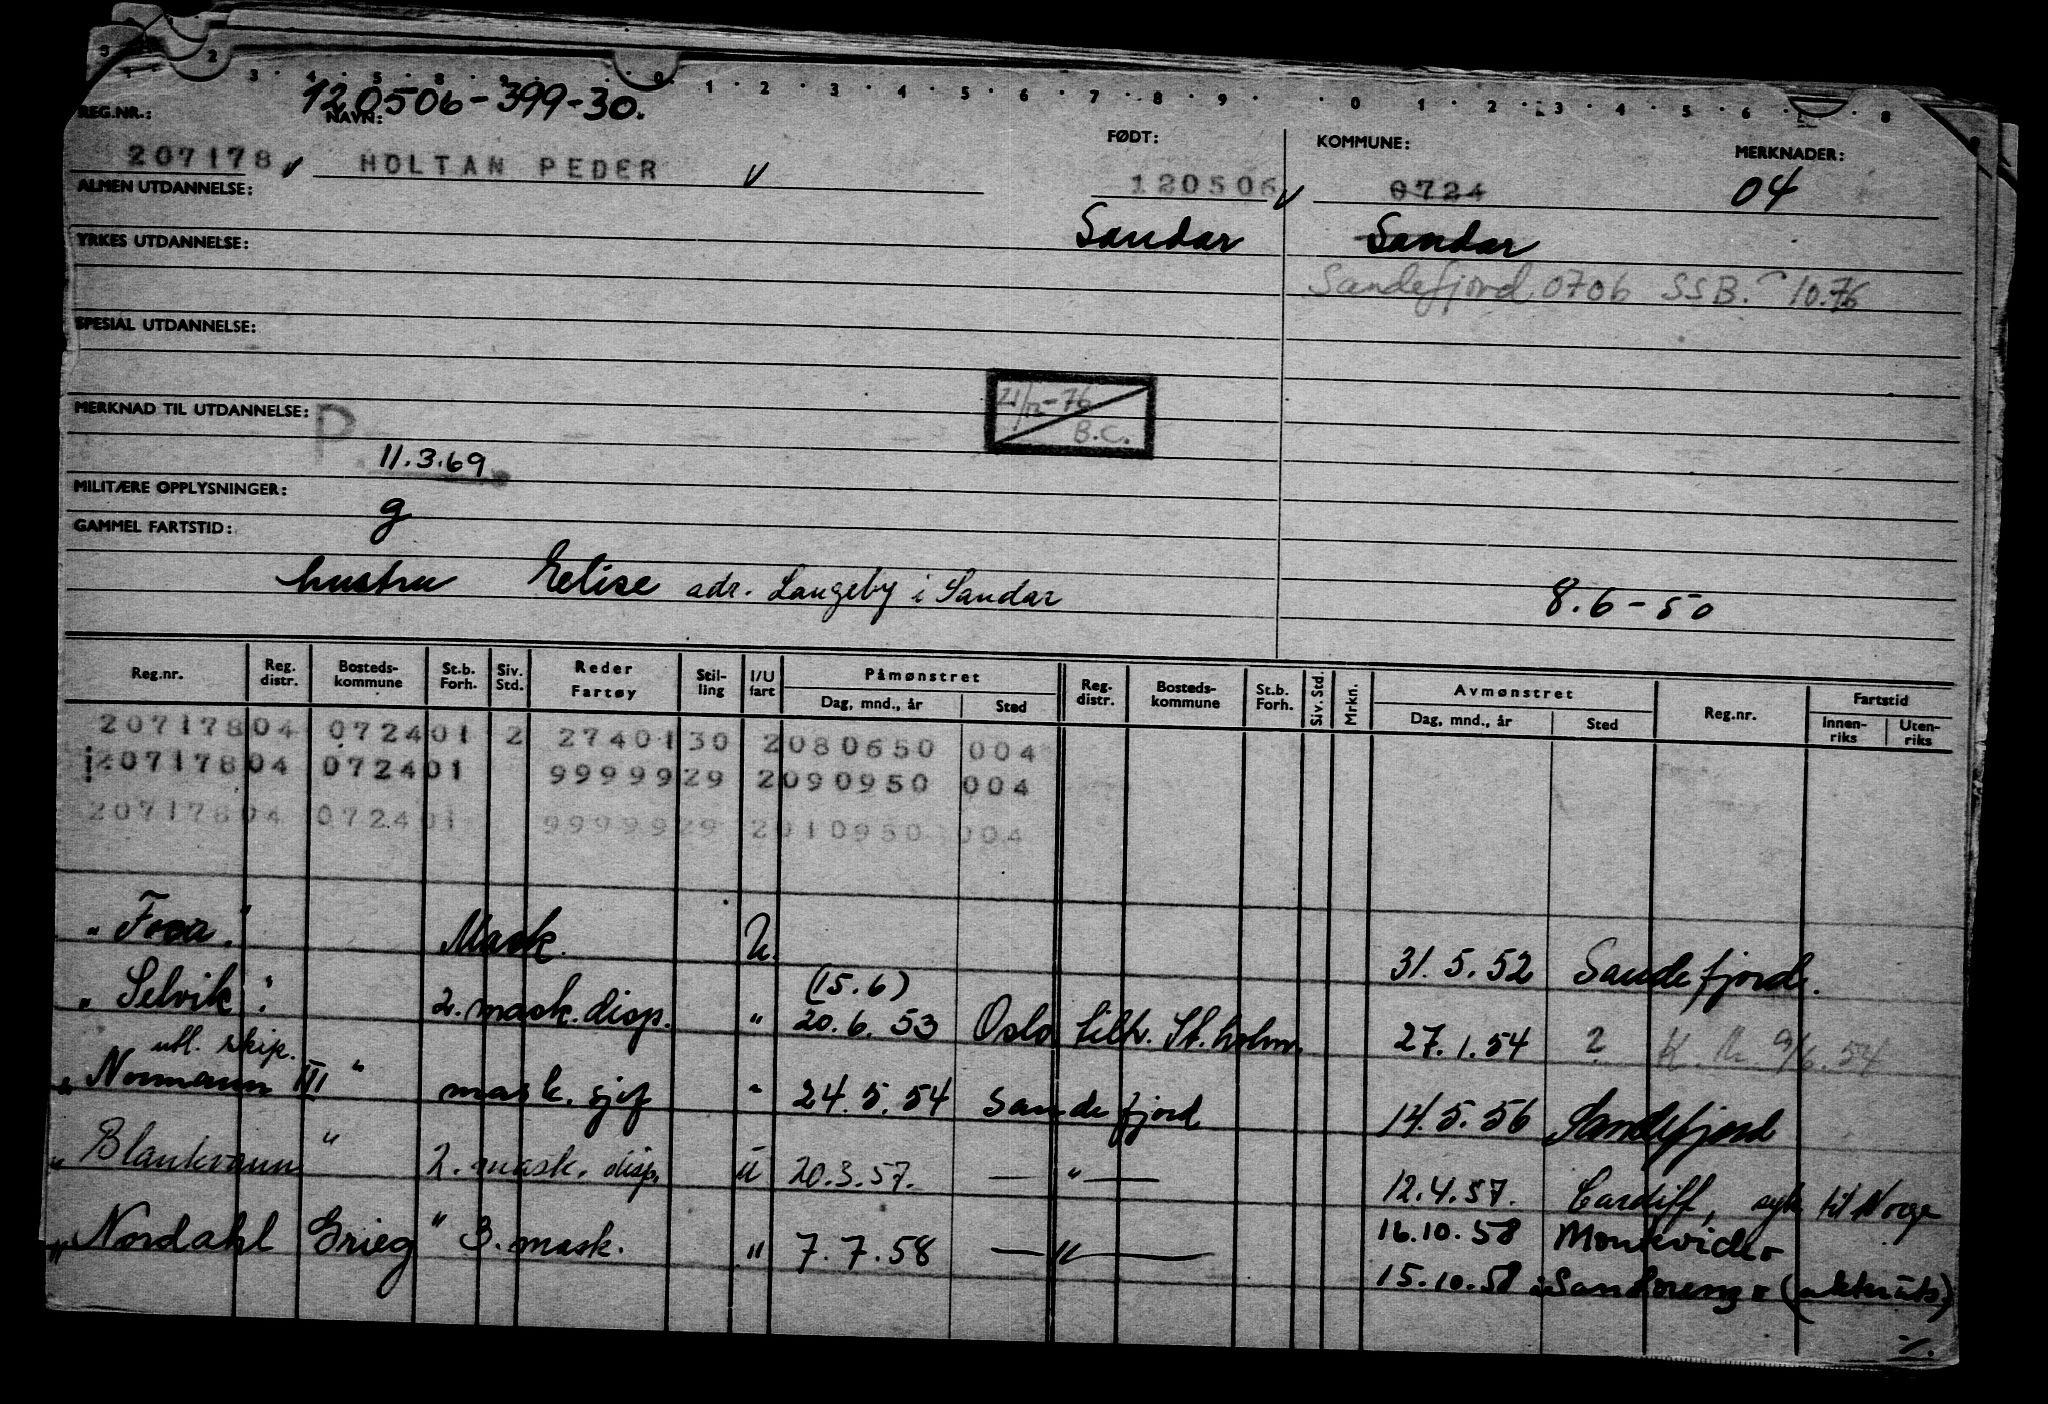 3 2 1 3 4 5 8 9 0 1 2 3 4 5 6 7 8 9 0 1 2 3 4 5 6 8
120506-399-30.
REG.NR.: NAVN: FØDT: KOMMUNE: MERKNADER:
207178 HOLTAN PEDER 120506 0724 04
ALMEN UTDANNELSE:
Sandar Sandar
YRKES UTDANNELSE:
Sandefjord 0706 SSB. 10.76
SPESIAL UTDANNELSE:
21/12-76
B.C.
MERKNAD TIL UTDANNELSE: P
11.3.69
MILITÆRE OPPLYSNINGER:
g
GAMMEL FARTSTID:
hustru Elise adr. Langeby i Sandar 8.6-50
Reg.nr. Reg. distr. Bosteds-kommune St.b. Forh. Siv. Std. Reder Fartøy Stil-ling I/U fart Påmønstret Dag, mnd., år Sted Reg. distr. Bosteds-kommune St.b. Forh. Siv. Std. Mrkn. Avmønstret Dag, mnd., år Sted Reg.nr. Fartstid Innen-riks Uten-riks
207178 04 0724 01 2 27401 30 2 080650 004
207178 04 0724 01 99999 29 2 090950 004
207178 04 0724 01 99999 29 2 010950 004
" " Mask. U. 31.5.52 Sandefjord.
"Selvik". 2. mask. disp. " (15.6) 20.6.53 Oslo tilh. St.holm. 27.1.54 ? 9/6.54
utl. skip.
"Normann III" mask. sjef " 24.5.54 Sandefjord 14.5.56 Sandefjord
"Blankvann" 2. mask. disp. U 20.3.57. — " — 12.4.57. Cardiff, syk til Norge
"Nordahl Grieg" 3. mask. " 7.7.58 — " — 16.10.58 Montevideo
15.10.58 i San Lorenzo (akterut)